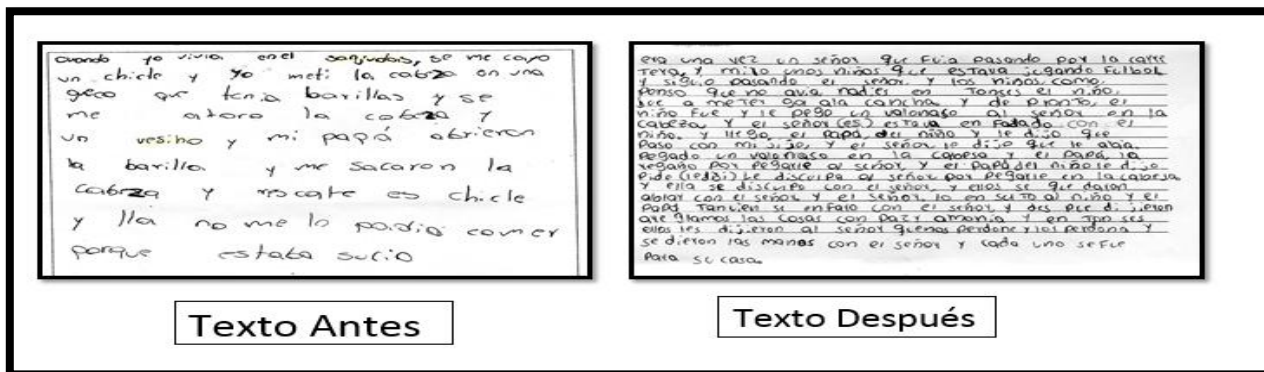 cuando yo vivia en el sanjudas, se me cayo
un chicle y yo meti la cabza en una
que tenia barillas y se
me atoro la cabza y
un vesino y mi papá abrieron
la barilla y me sacaron la
cabrza y rescate es chicle
y lla no me lo podia comer
porque estaba sucio
Texto Antes
era una vez un señor que fuia pasando por la carre
tera, y miro unos niños que estava jugando Futbol
y siguio pasando el señor y los niños como
Penso que no avia nadies en Tonses el niño,
fue a meter ga ala cancha y de Pronto, el
niño Fue y le pego un valonaso al señor en la
cabeza, y el señor (es) estava en Fadado con el
niño. y llego, el papá del niño y le dijo que
Paso con mi sijo, y el señor le dijo que le abia.
Pegado un valonaso en la cabesa y el Papá, lo
regaño por Pegarle al señor, y el papá del niño le dijo
Pide (Peddi) Le disculpa al señor por pegarle en la cabesa
y ella se disculpo con el señor, y ellos se que daron
ablar con el señor y el señor, lo en su To al niño y el
Papá Tanvien se enfalo con el señor y des pue dijieron
que glamos las cosas con Paz y amonia y en Ton ses
ellos les dijieron al señor quenos perdone y los perdona y
se dieron las manos con el señor y cada uno se fue
Para su casa.
Texto Después